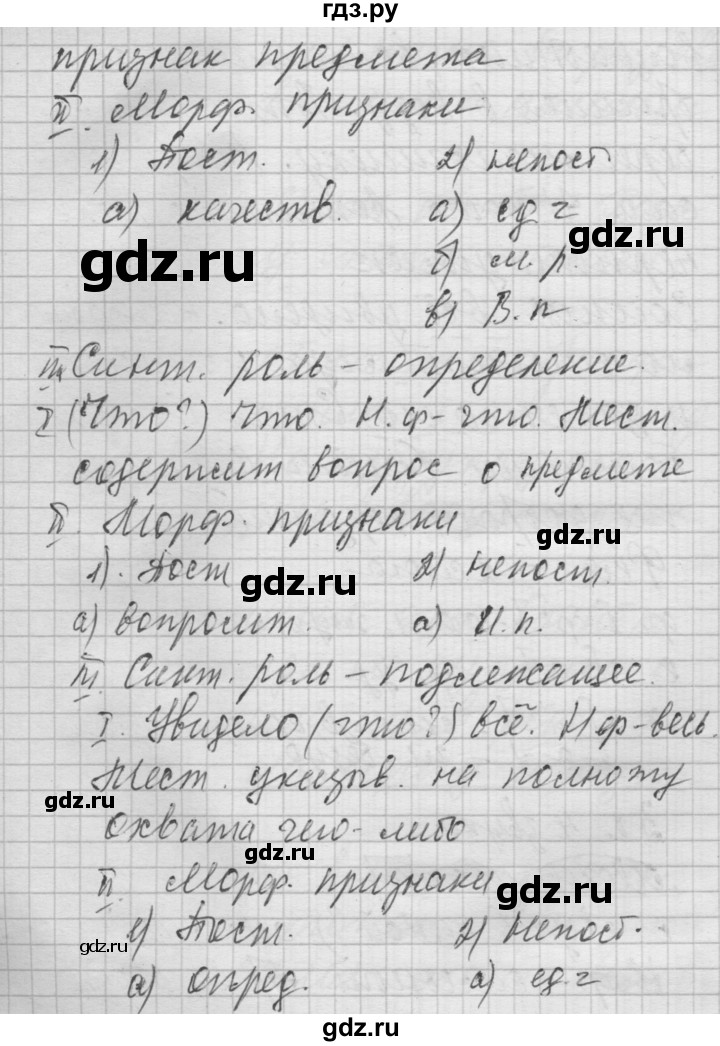 гдз.ру
признак предмета
II. Морф. признаки
1) Пост. 2) непост
а) качеств. а) ед. ч
gdz.ru
gdz.ru
б) м. р.
в) В. п
III. Синт. роль – определение.
I (Что?) Что. Н. ф – что. Мест.
содержит вопрос о предмете
II. Морф. признаки
gdz.ru
1). Пост 2) Непост.
gdz.ru
а) вопросит. а) И. п.
III. Синт. роль – подлежащее.
I. Увидело (что?) всё. Н ф – весь.
Мест. указыв. на полноту
gdz.ru
охвата чего-либо
gdz.ru
II. Морф. признаки
gdz.ru
1) Пост. 2) Непост.
gdz.ru
а) опред. а) ед. ч
gdz.ru